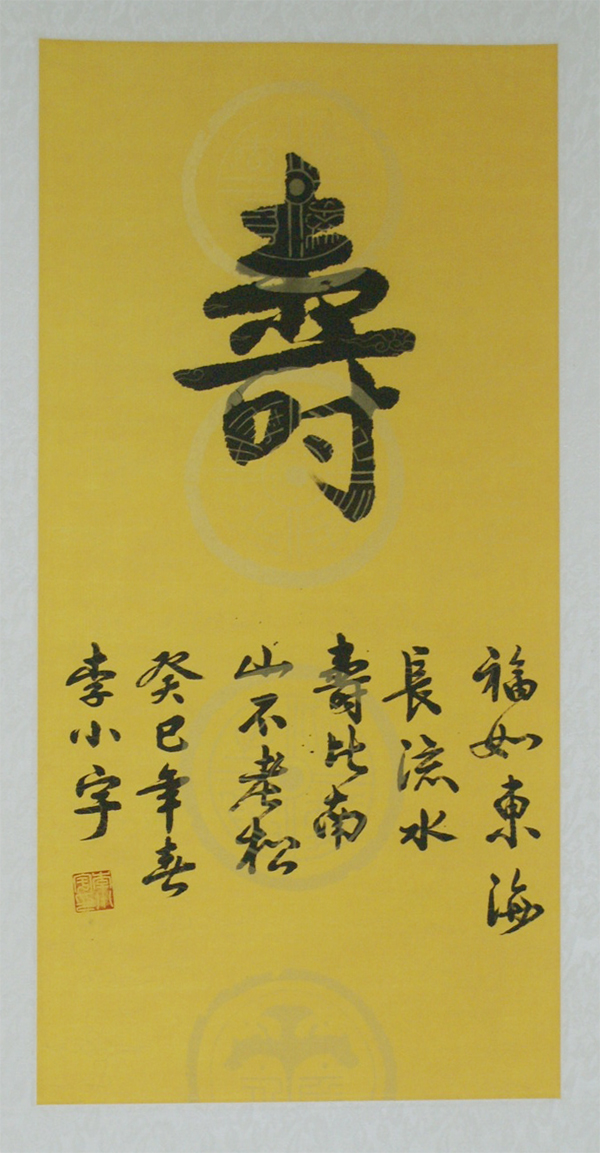 壽
福如東海
長流水
壽比南
山不老松
癸巳年春
李小字